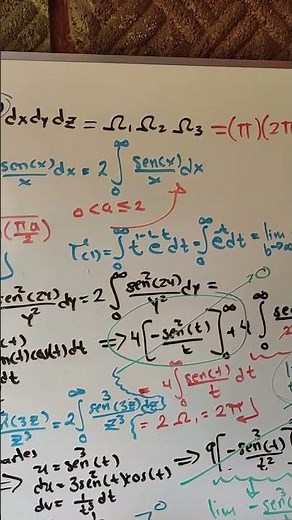 dxdydz = Ω₁ Ω₂ Ω₃ = (π)(2π
sen(x)/x dx = 2 ∫₀^∞ sen(x)/x dx
0 < a ≤ 2
(πa/2)
Γ(1) = ∫₀^∞ t¹⁻¹ e⁻ᵗ dt = ∫₀^∞ e⁻ᵗ dt = lim b→∞
sen²(2y)/y² dy = 2 ∫₀^∞ sen²(2y)/y² dy =
cos(t) dt ⇒ 4[-sen²(t)/t]₀^∞ + 4 ∫₀^∞ sen(
dt = 4 ∫₀^∞ sen(t)/t dt
(3z)/z³ = 2 ∫₀^∞ sen³(3z)dz/z³ = 2 Ω₁ = 2π
u = sen³(t) ⇒ 9[-sen³(t)/t²
⇒ du = 3sen²(t)cos(t)
dv = 1/t³ dt
lim -sen³(